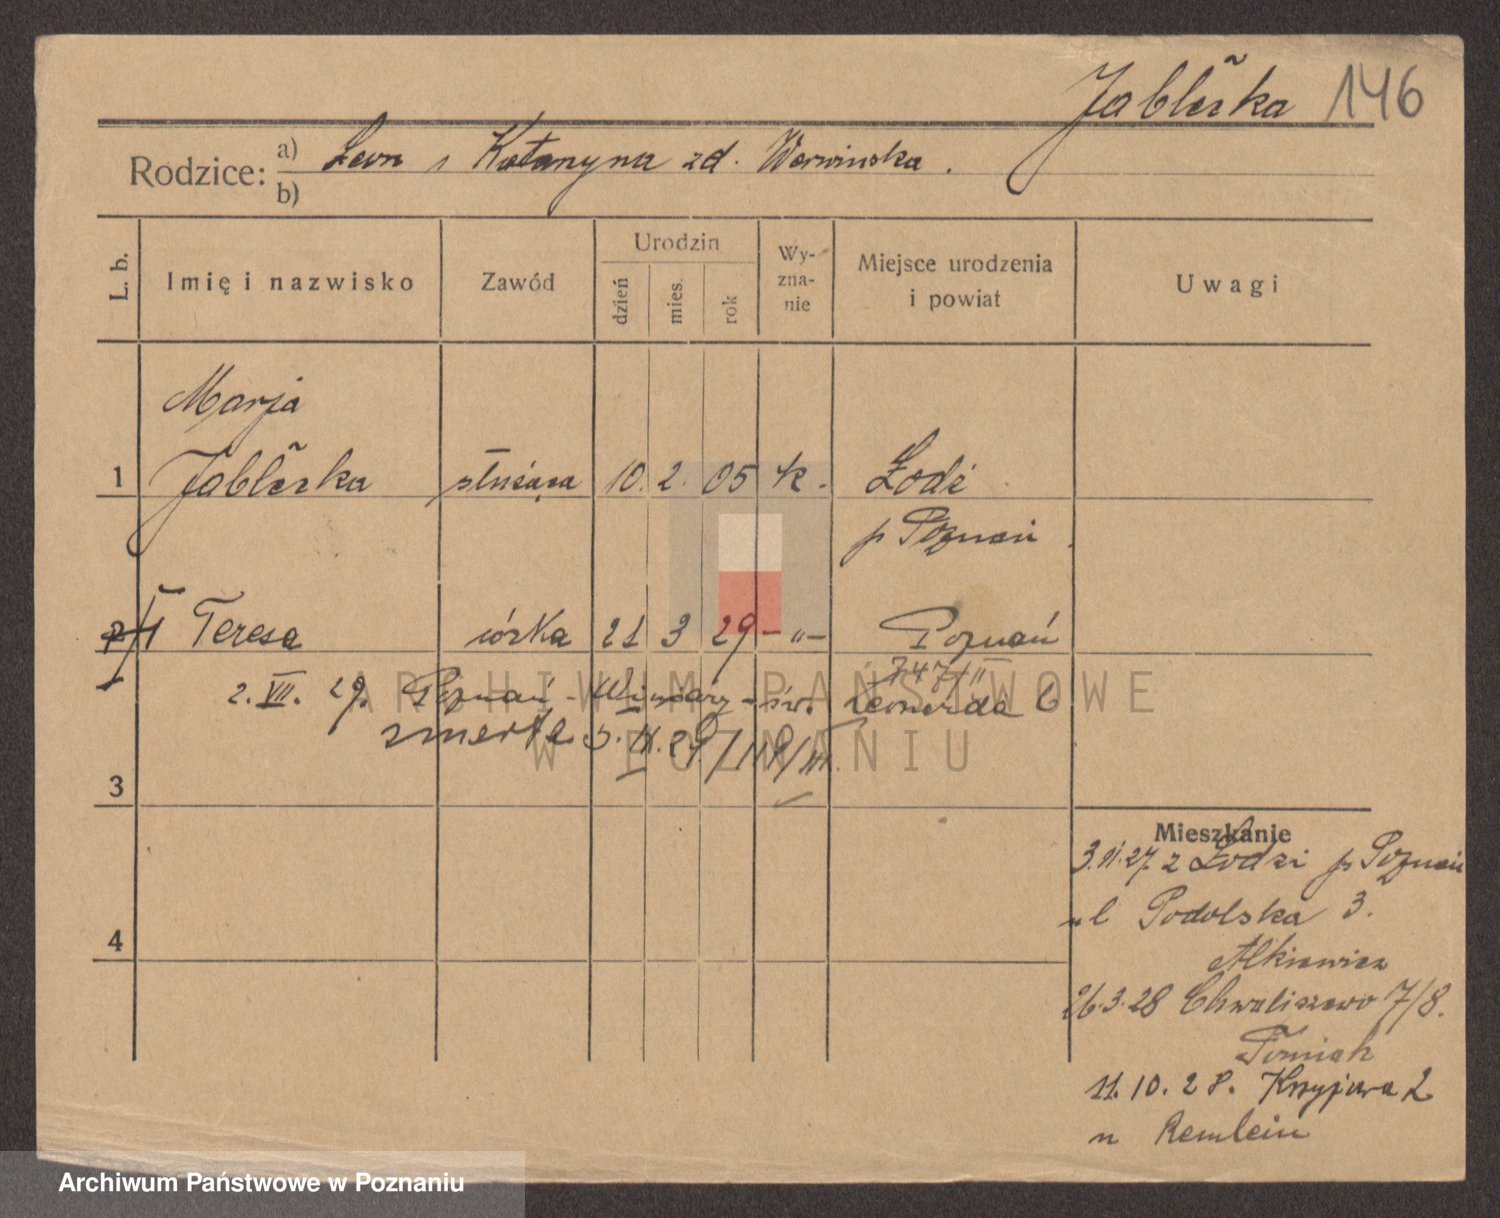 Jablerka 146
Rodzice: a) Leon i Katarzyna zd. Werwińska.
b)
L. b. Imię i nazwisko Zawód Urodzin dzień mies. rok Wyzna-nie Miejsce urodzenia i powiat Uwagi
Marja
1 Jablerka służąca 10. 2. 05 k. Łodź
p Poznań.
2 Teresa córka 21 3 29 -"- Poznań
747/II
2. VII. 29. Poznań - Winiary - św. Leonarda 6
zmarła 5. IX. 29
3
Mieszkanie
3.11.27. z Łodzi p Poznań
ul Podolska 3.
4
Alkiewicz
26.3.28 Chwaliszewo 7/8.
Tomiak
11.10.28. Krzyjowa 2
n Remlein
ARCHIWUM PAŃSTWOWE
W POZNANIU
Archiwum Państwowe w Poznaniu